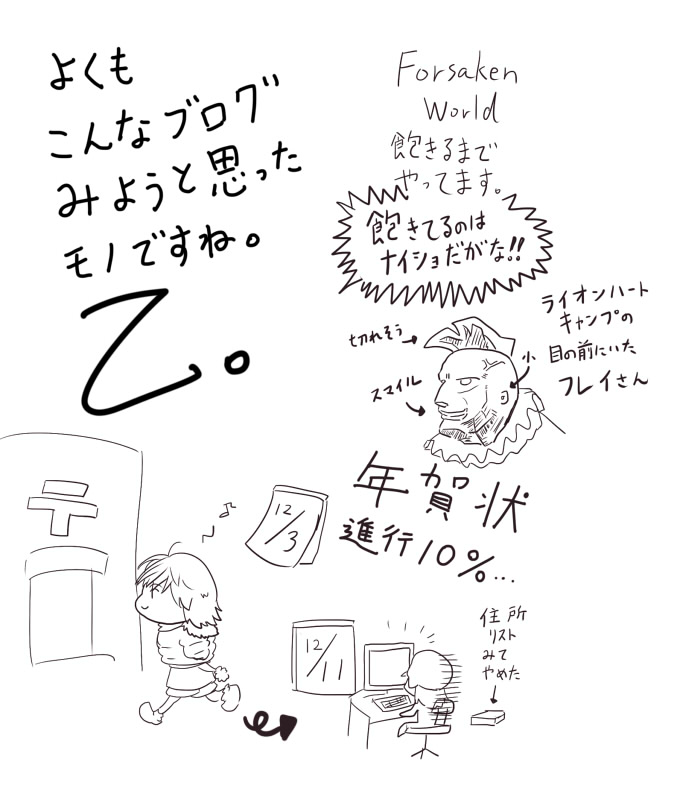 よくも
こんなブログ
みようと思った
モノですね。
乙。
Forsaken
World
飽きるまで
やってます。
飽きてるのは
ナイショだがな!!
ライオンハート
キャンプの
目の前にいた
フレイさん
切れそう
小
スマイル
年賀状
進行10%...
〒
12/3
12/11
住所
リスト
みて
やめた